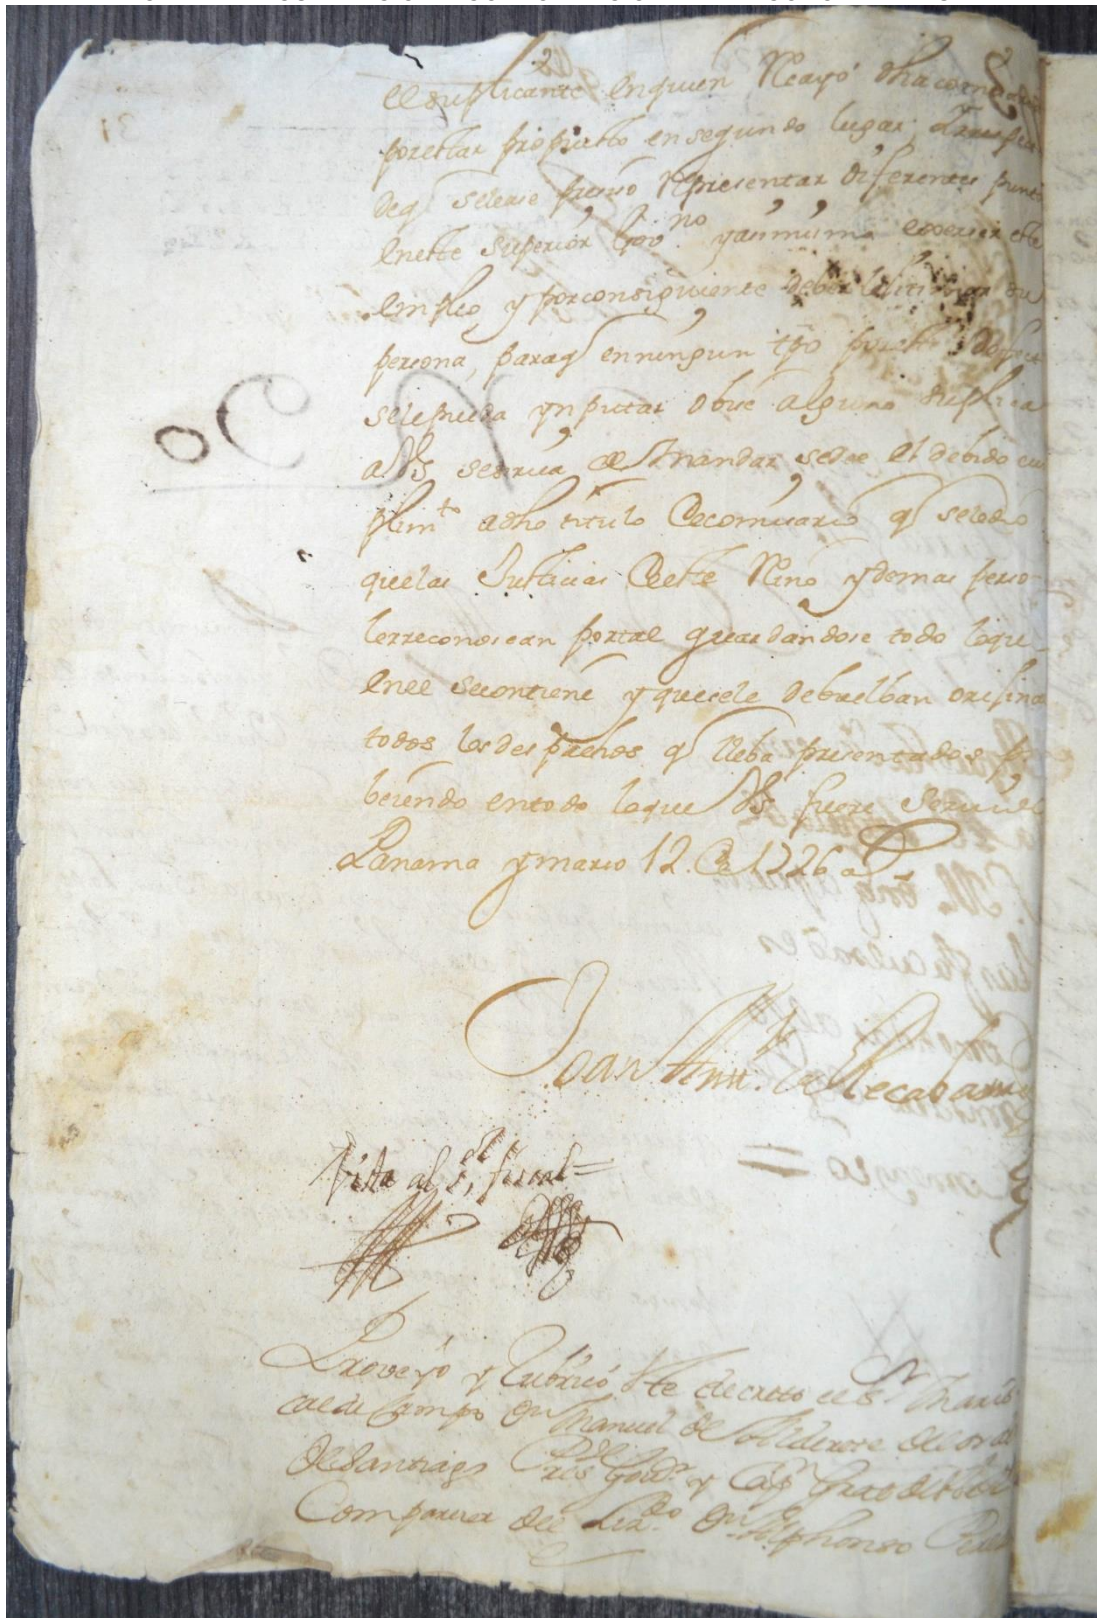 el suplicante en quien Recayó dha comi
por estar propuesto en segundo lugar, y
deq se le ofresió representar diferentes punt
en este superior Govno. y asimismo exerser este
empleo y por consiguiente deber lexitimar su
persona, paraq en ningun tpo por este
se le pueda ynputar obre alguno suplica
a VS. se sirva de Mandar se dee el debido cu
plimto adho titulo de comisario q se le dio
que las Justicias de este Reino y demas perso
le rreconoscan por tal guardandose todo loque
en el se contiene y que se le debuelban orixina
todos los despachos q lleba presentados p
beiendo en todo lo que VS. fuere servido
Panama y marso 12. de 1726 as
Joan Antt. de Recabarren
Vista al sr. fiscal =
Proveyó y Rubricó este decreto el Sr. Maris
cal de Campo Dn Manuel de Alderete del or
de Santiago Presdte Govor. y Capn Gral de
Con pareser del Lizdo. Dn Alphonso